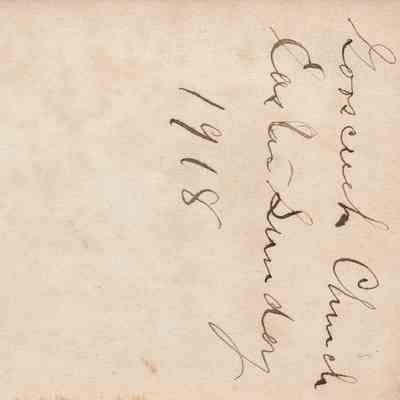 Gooscreek Church
Easter Sunday
1918